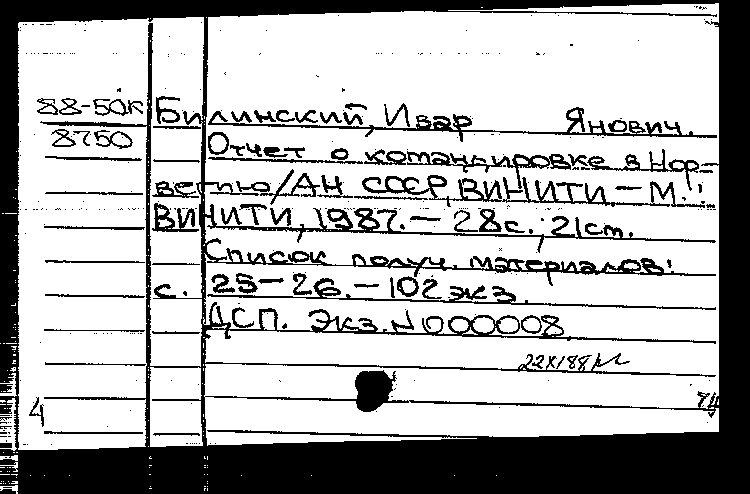 88-50к Билинский, Ивар Янович.
8750 Отчет о командировке в Нор-
вегию/АН СССР, ВИНИТИ.-М.:
ВИНИТИ, 1987.-28с.; 21см.
Список получ. материалов:
с. 25-26.-102 экз.
ДСП. Экз. N000008.
22X188
4